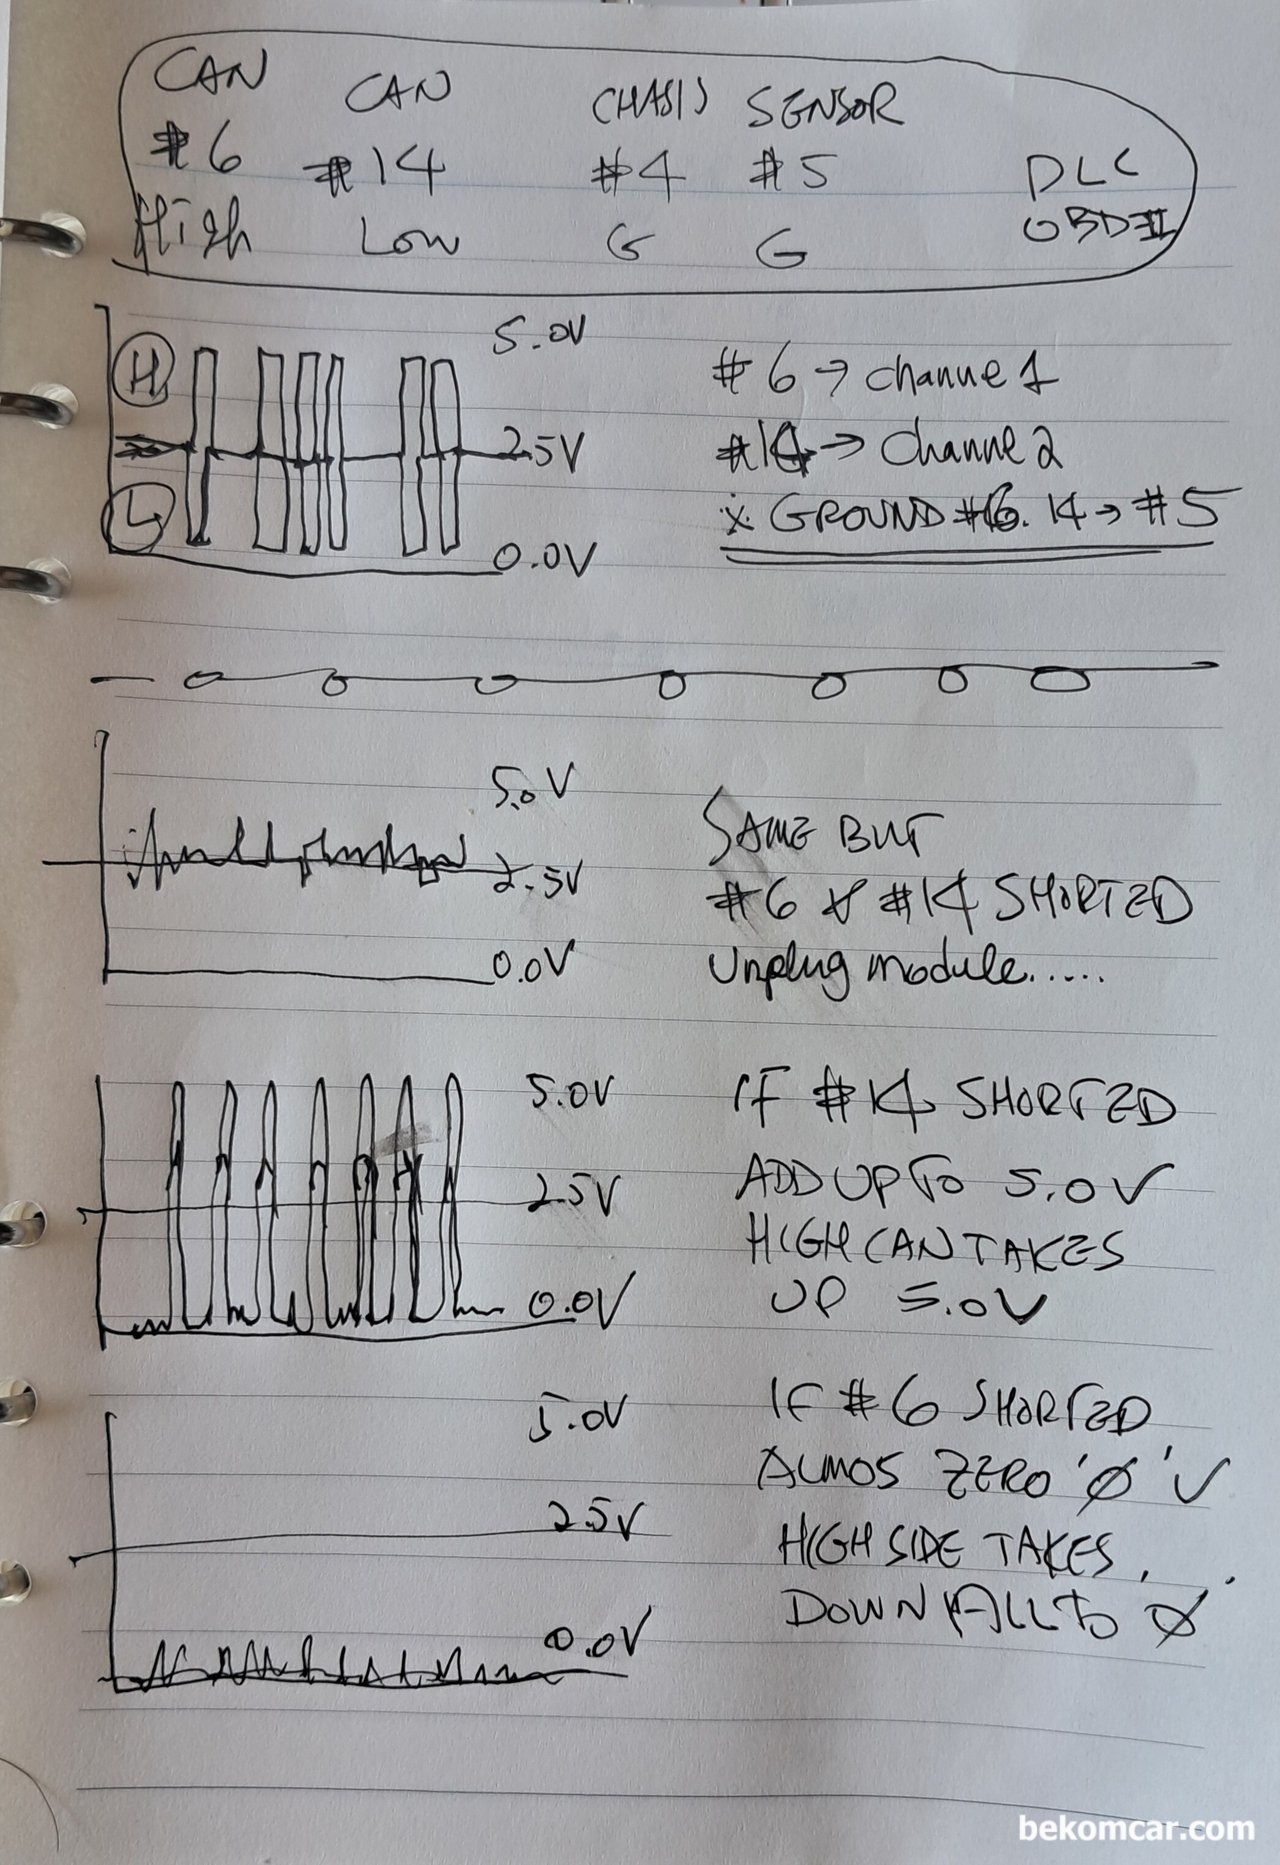 CAN CAN CHASIS SENSOR
#6 #14 #4 #5 DLC
High Low G G OBDII
H 5.0V #6 → channel 1
2.5V #14 → channe 2
L ※ GROUND #6. 14 → #5
0.0V
5.0V SAME BUT
2.5V #6 & #14 SHORTED
0.0V Unplug module.....
5.0V IF #14 SHORTED
2.5V ADD UP TO 5.0V
HIGH CAN TAKES
0.0V UP 5.0V
5.0V IF #6 SHORTED
ALMOS ZERO 'Ø' V
2.5V HIGH SIDE TAKES
0.0V DOWN ALL TO Ø
bekomcar.com